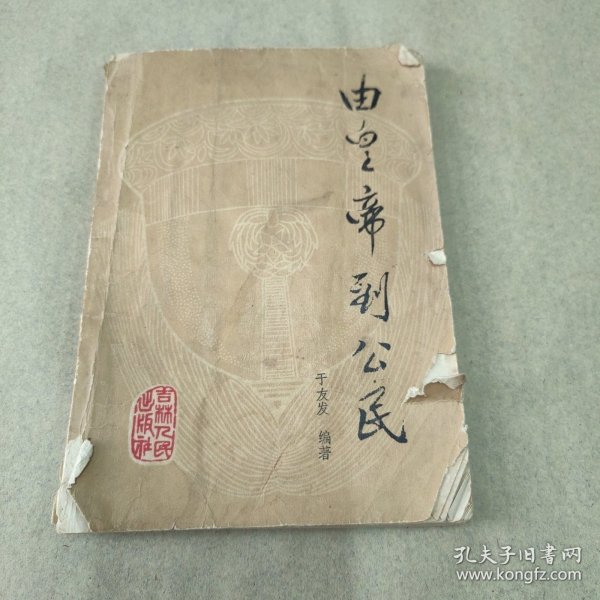 由皇帝到公民
于友发 编著
吉林人民
出版社
孔夫子旧书网
www.kongfz.com